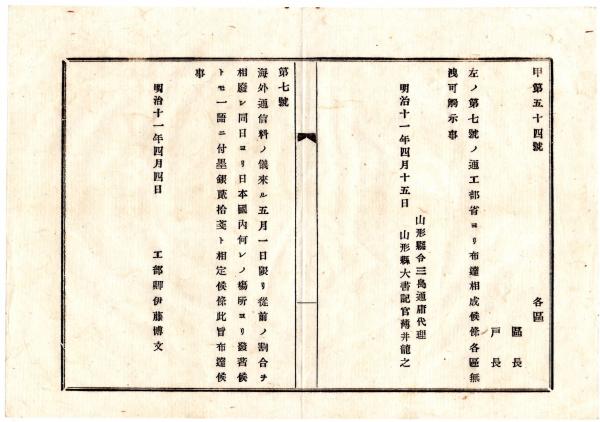 甲第五十四號
各區
區長
戸長
左ノ第七號ノ通工部省ヨリ布達相成候條各區無
洩可觸示事
明治十一年四月十五日
山形縣令三島通庸代理
山形縣大書記官薄井龍之
第七號
海外通信料ノ儀來ル五月一日限リ從前ノ割合ヲ
相廢シ同日ヨリ日本國內何レノ場所ヨリ發著候
トモ一語ニ付墨銀貳拾戔ト相定候條此旨布達候
事
明治十一年四月四日
工部卿伊藤博文